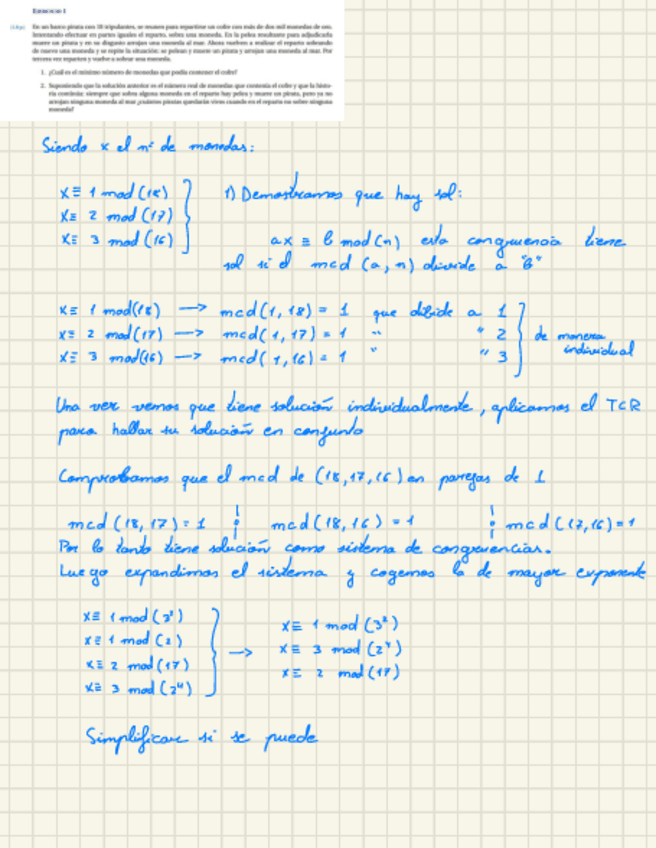 EJERCICIO 1
En un barco pirata con 18 tripulantes, se reunen para repartirse un cofre con más de dos mil monedas de oro.
Intentando efectuar en partes iguales el reparto, sobra una moneda. En la pelea resultante para adjudicarla
muere un pirata y en su disgusto arrojan una moneda al mar. Ahora vuelven a realizar el reparto sobrando
de nuevo una moneda y se repite la situación: se pelean y muere un pirata y arrojan una moneda al mar. Por
tercera vez reparten y vuelve a sobrar una moneda.
1. ¿Cuál es el mínimo número de monedas que podía contener el cofre?
2. Suponiendo que la solución anterior es el número real de monedas que contenía el cofre y que la histo-
ria continúa: siempre que sobra alguna moneda en el reparto hay pelea y muere un pirata, pero ya no
arrojan ninguna moneda al mar ¿cuántos piratas quedarán vivos cuando en el reparto no sobre ninguna
moneda?
Siendo x el nº de monedas:
x ≡ 1 mod (18)
x ≡ 2 mod (17)
x ≡ 3 mod (16)
1) Demostramos que hay sol:
ax ≡ b mod (n) esta congruencia tiene
sol si el mcd (a, n) divide a "b"
x ≡ 1 mod(18) → mcd(1, 18) = 1 que dibide a 1
x ≡ 2 mod(17) → mcd(1, 17) = 1 " " 2
x ≡ 3 mod(16) → mcd(1, 16) = 1 " " 3
de manera
individual
Una vez vemos que tiene solución individualmente, aplicamos el TCR
para hallar su solución en conjunto
Comprobamos que el mcd de (18, 17, 16) en parejas de 1
mcd (18, 17) = 1 mcd (18, 16) = 1 mcd (17, 16) = 1
Por lo tanto tiene solución como sistema de congruencias.
Luego expandimos el sistema y cogemos la de mayor exponente
x ≡ 1 mod (3²)
x ≡ 1 mod (2)
x ≡ 2 mod (17)
x ≡ 3 mod (2⁴)
→
x ≡ 1 mod (3²)
x ≡ 3 mod (2⁴)
x ≡ 2 mod (17)
Simplificar si se puede